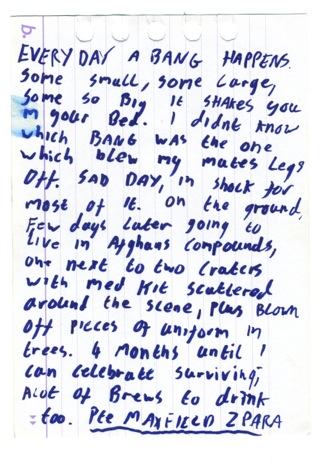 b.
EVERY DAY A BANG HAPPENS.
Some small, some large,
some so Big it SHAKES you
in your Bed. I didnt know
which BANG was the one
which blew my mates Legs
Off. SAD DAY, in shock for
most of it. on the ground,
Few days later going to
live in Afghans compounds,
one next to two craters
with med Kit scattered
around the scene, Plus Blown
off pieces of uniform in
trees. 4 months until I
can celebrate surviving,
Alot of Brews to drink
too. Pte MAXFIELD 2PARA